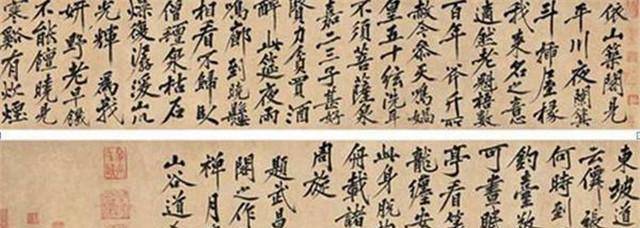 依山築閣見
平川夜闌箕
斗插屋椽
我來名之意
適然老魁梧數
百年斧斤所
赦令參天鳴媧
皇五十弦洗耳
不須菩薩泉
嘉二三子甚好
賢力貧買酒
醉此筵夜雨
鳴廊到曉懸
相看不歸臥
僧氈泉枯石
燥復潺湲山川
光輝為我
妍野老早饑
不能饘曉見
寒谿有炊煙
東坡道
張
何時到
釣臺驚
可晝眠
亭看篆
龍纏安
此身脫拘
舟載諸
周旋
題武昌
閣之作
禪月
山谷道